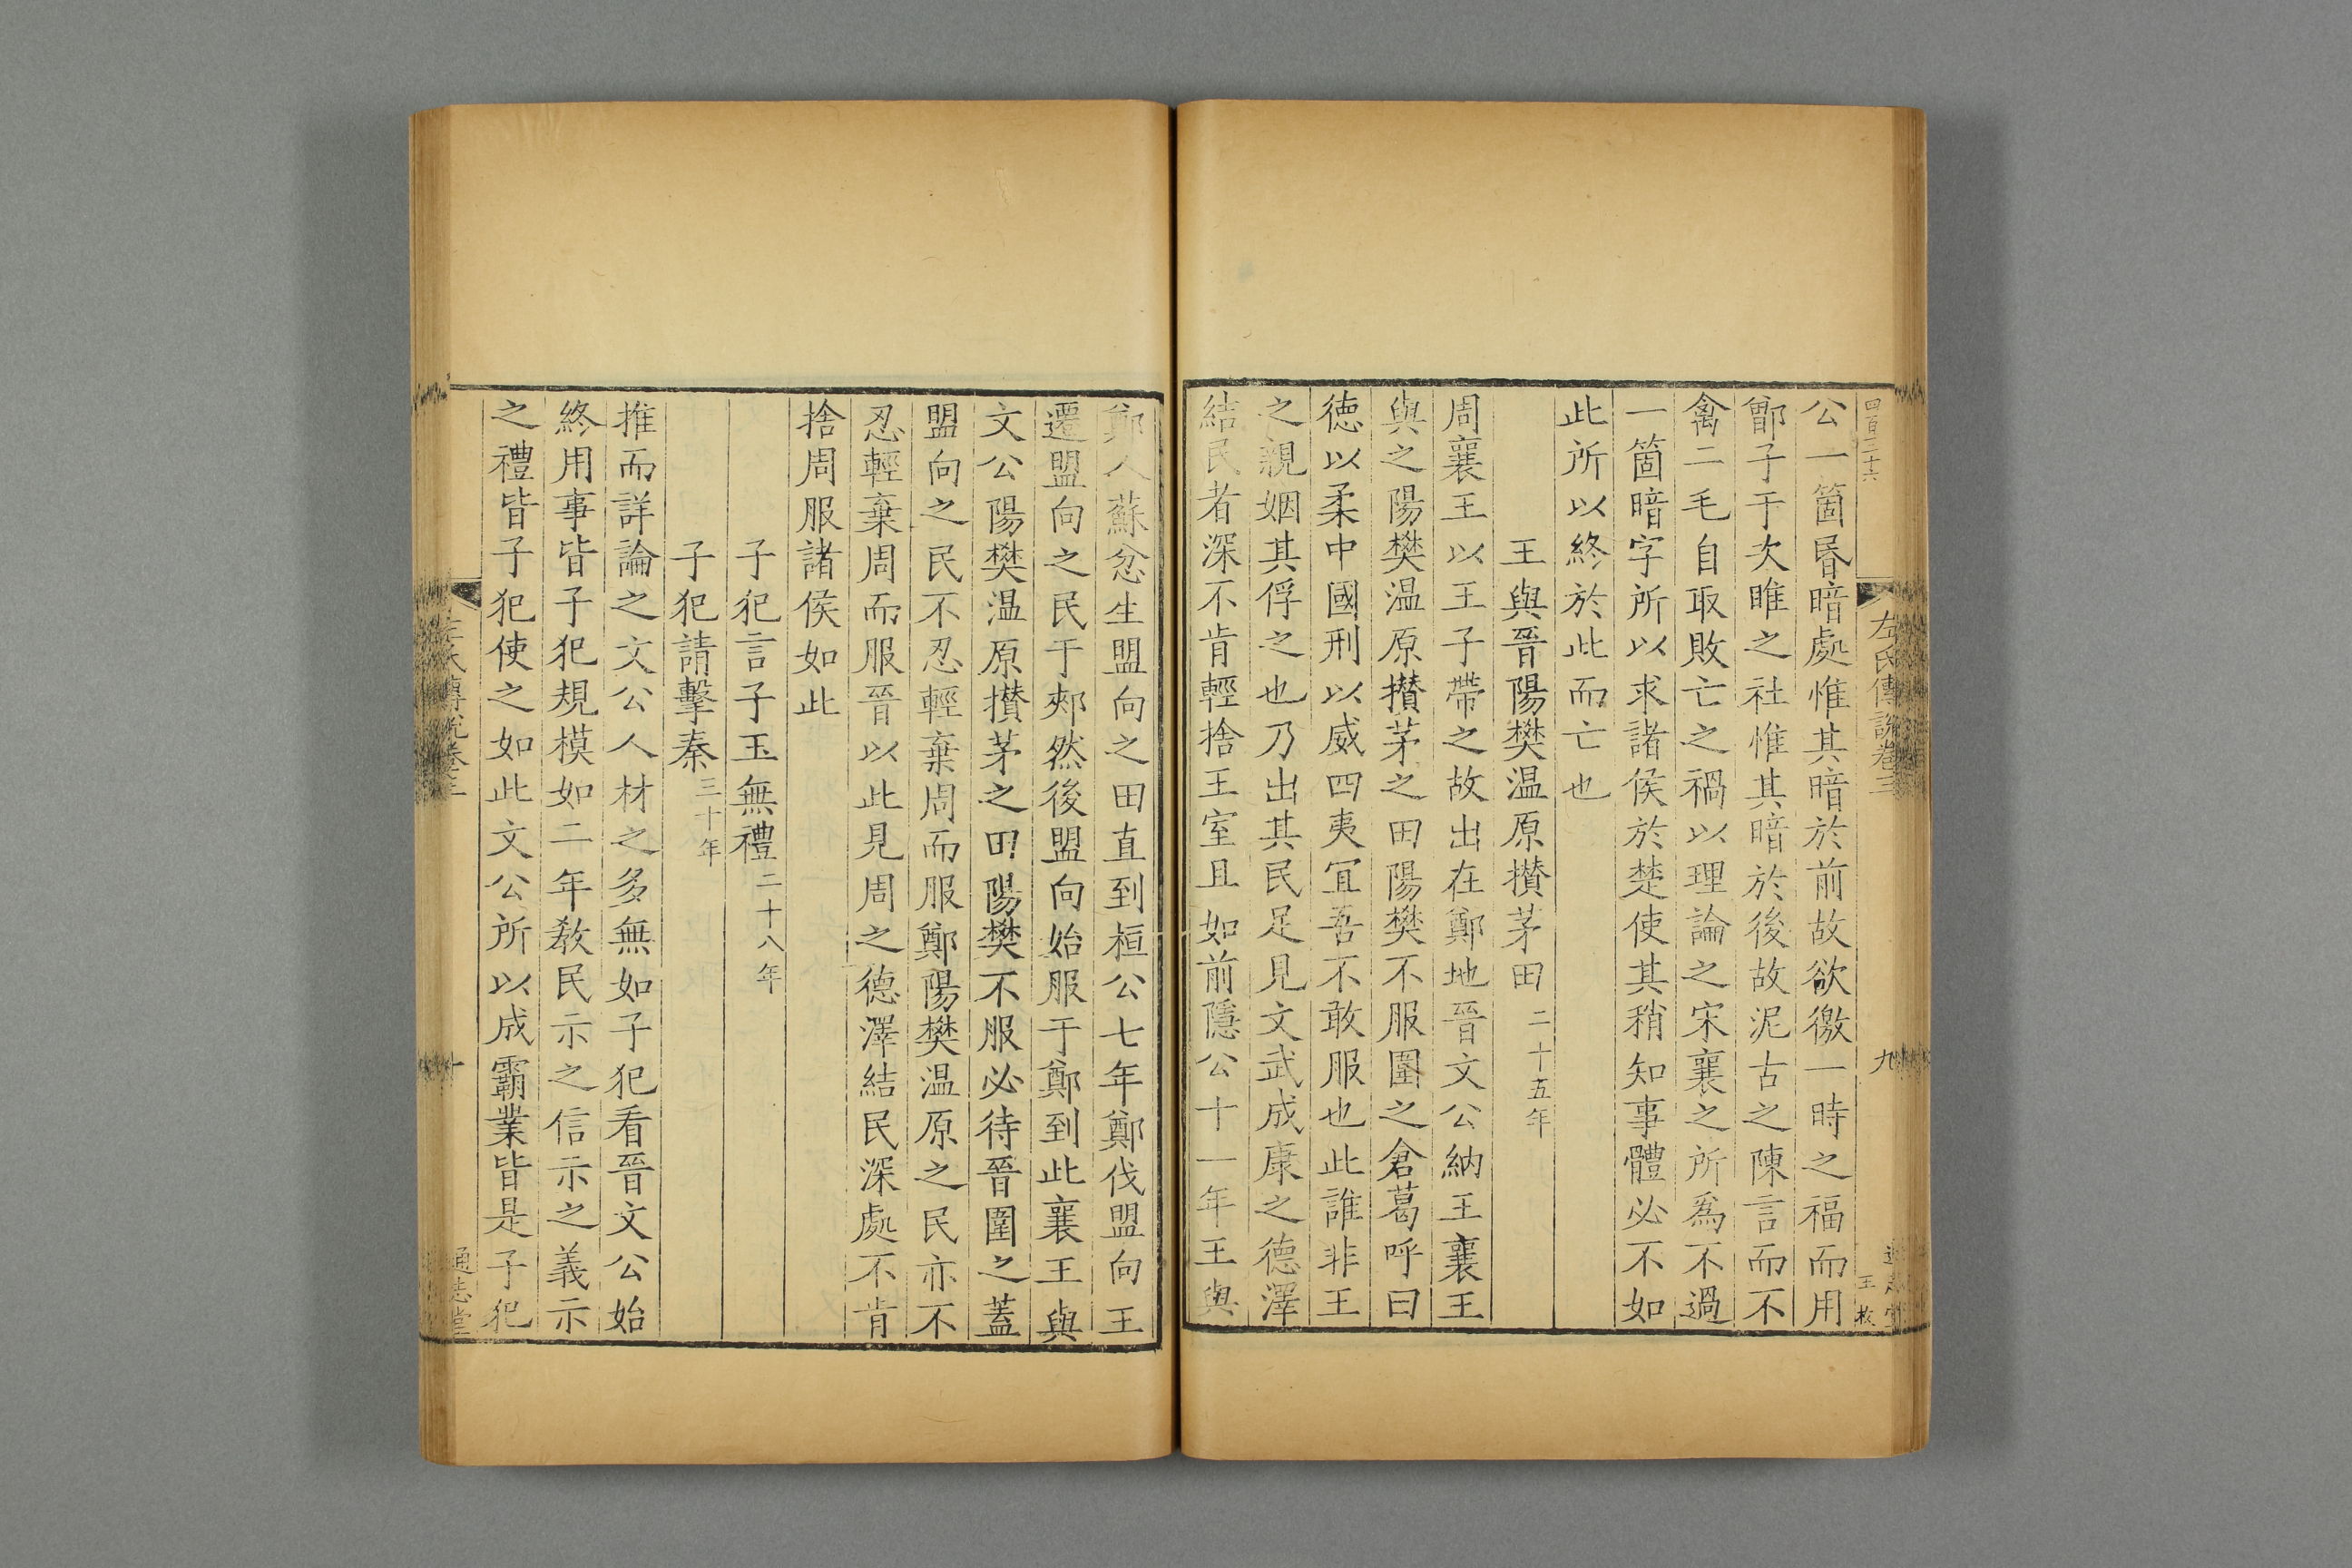 四百三十六
左氏傳說卷三
九
通志堂
王枚
公一箇昏暗處惟其暗於前故欲徼一時之福而用
鄫子于次睢之社惟其暗於後故泥古之陳言而不
禽二毛自取敗亡之禍以理論之宋襄之所爲不過
一箇暗字所以求諸侯於楚使其稍知事體必不如
此所以終於此而亡也
王與晉陽樊温原攅茅田二十五年
周襄王以王子帶之故出在鄭地晉文公納王襄王
與之陽樊温原攅茅之田陽樊不服圍之倉葛呼曰
德以柔中國刑以威四夷冝吾不敢服也此誰非王
之親姻其俘之也乃出其民足見文武成康之德澤
結民者深不肯輕捨王室且如前隱公十一年王與
鄭人蘇忿生盟向之田直到桓公七年鄭伐盟向王
遷盟向之民于郟然後盟向始服于鄭到此襄王與
文公陽樊温原攅茅之田陽樊不服必待晉圍之蓋
盟向之民不忍輕棄周而服鄭陽樊温原之民亦不
忍輕棄周而服晉以此見周之德澤結民深處不肯
捨周服諸侯如此
子犯言子玉無禮二十八年
子犯請擊秦三十年
推而詳論之文公人材之多無如子犯看晉文公始
終用事皆子犯規模如二年教民示之信示之義示
之禮皆子犯使之如此文公所以成霸業皆是子犯
左氏傳說卷三
十
通志堂